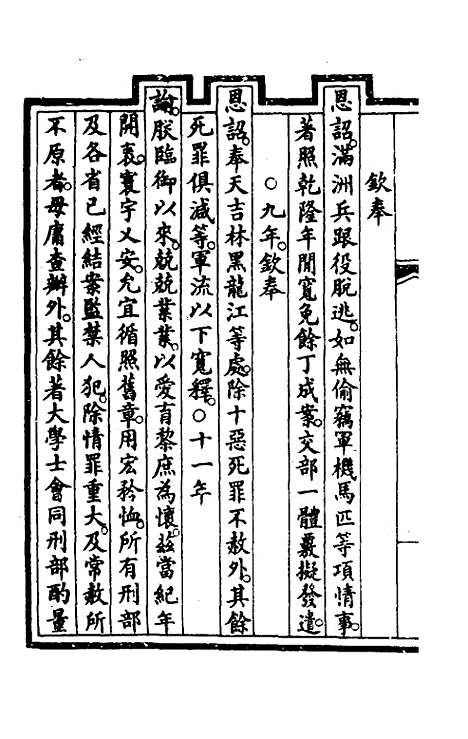 欽奉
恩詔。滿洲兵跟役脫逃。如無偷竊軍機馬匹等項情事。
著照乾隆年閒寬免餘丁成案。交部一體覈擬發遣。
○九年。欽奉
恩詔。奉天吉林黑龍江等處。除十惡死罪不赦外。其餘
死罪俱減等。軍流以下寬釋。○十一年
諭。朕臨御以來。兢兢業業。以愛育黎庶為懷。茲當紀年
開袠。寰宇乂安。允宜循照舊章。用宏矜恤。所有刑部
及各省已經結案監禁人犯。除情罪重大。及常赦所
不原者。毋庸查辦外。其餘著大學士會同刑部酌量